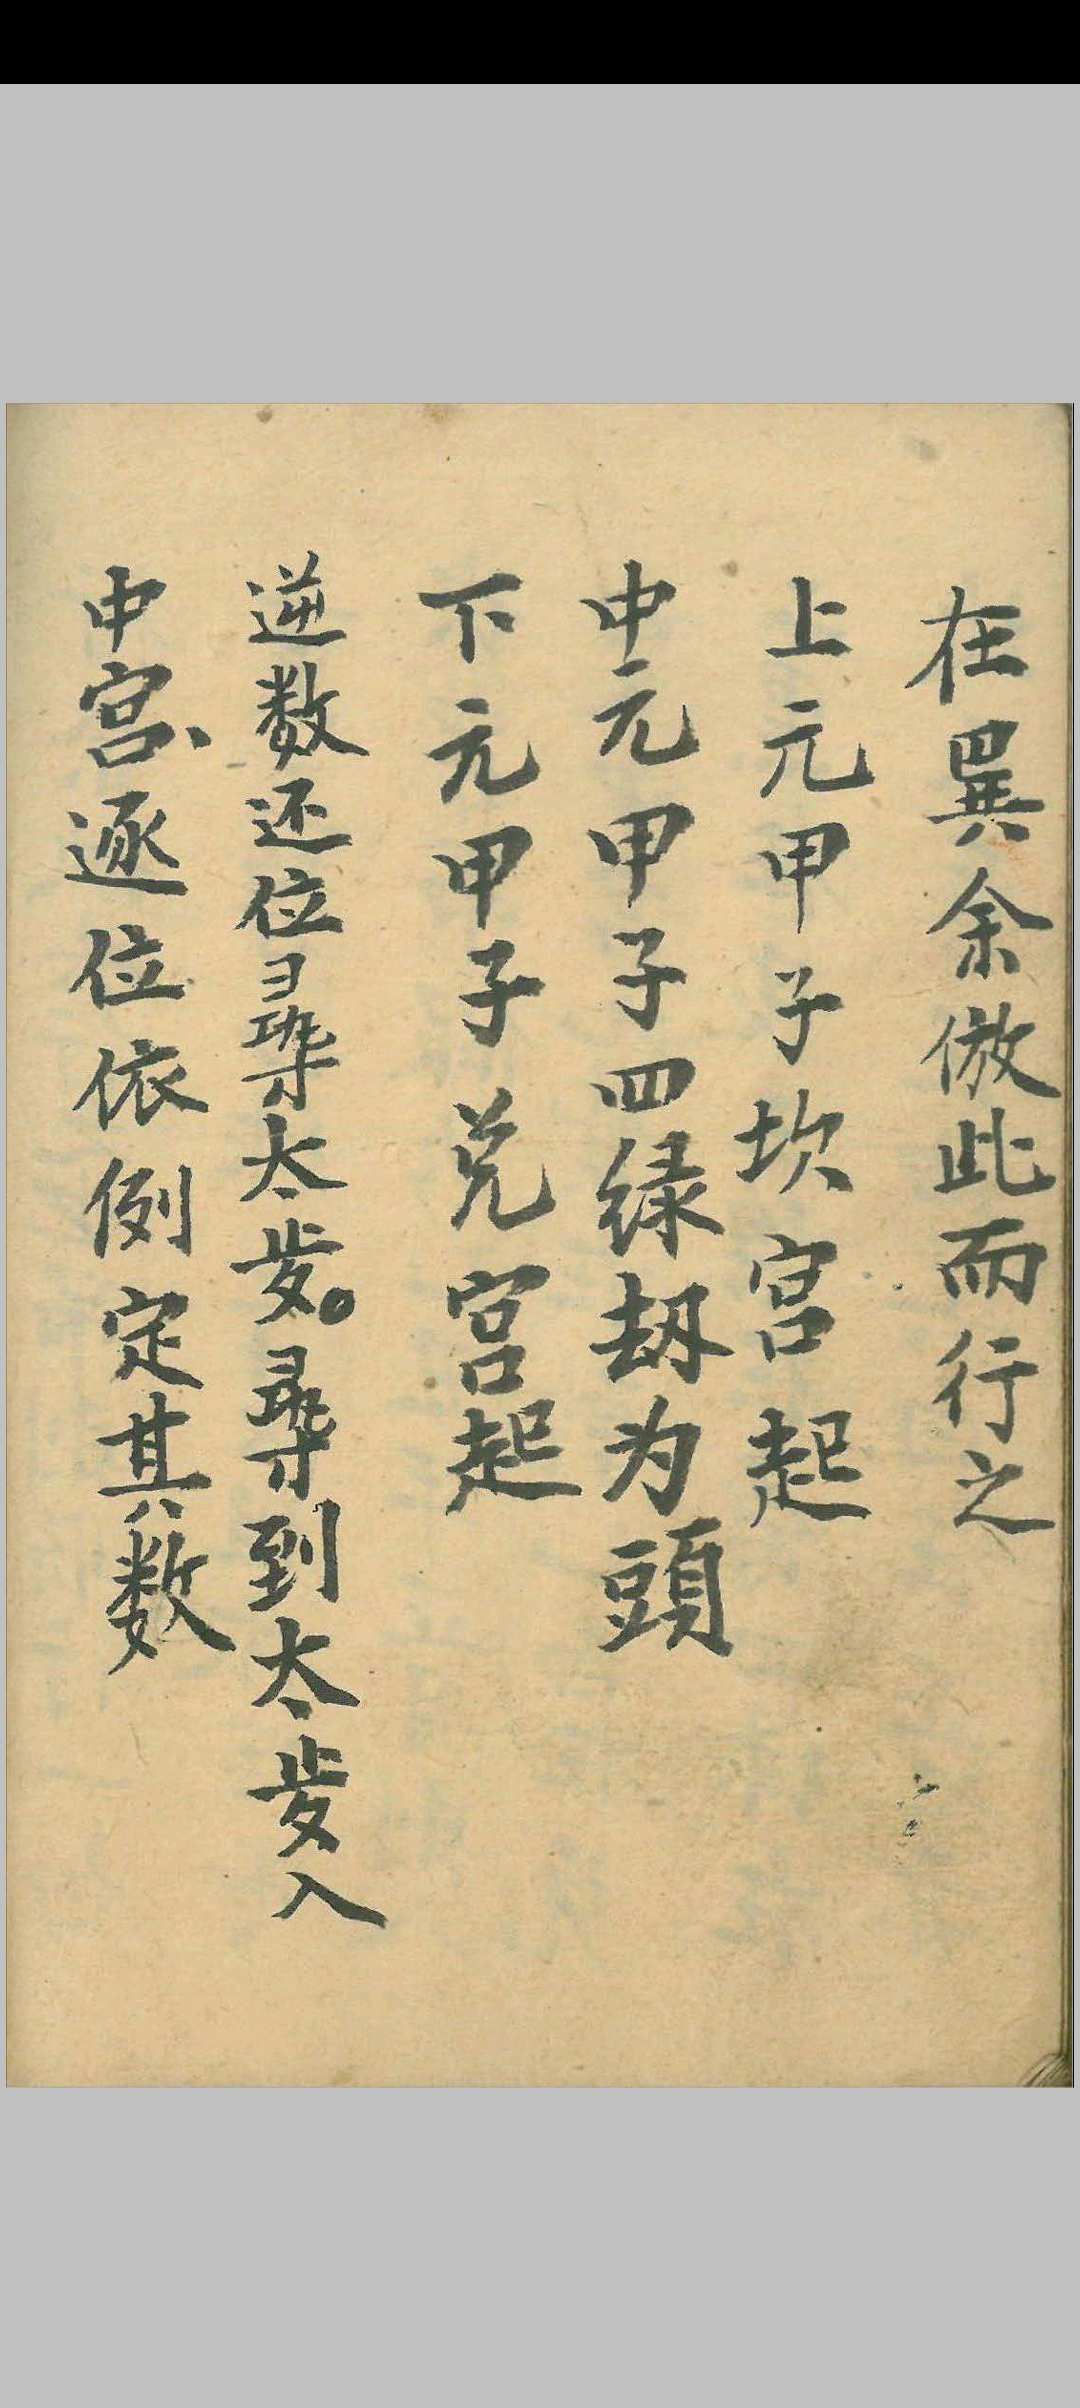 在巽余倣此而行之
上元甲子坎宫起
中元甲子四绿劫为頭
下元甲子兑宫起
逆数还位尋太岁。尋到太岁入
中宫、逐位依例定其数